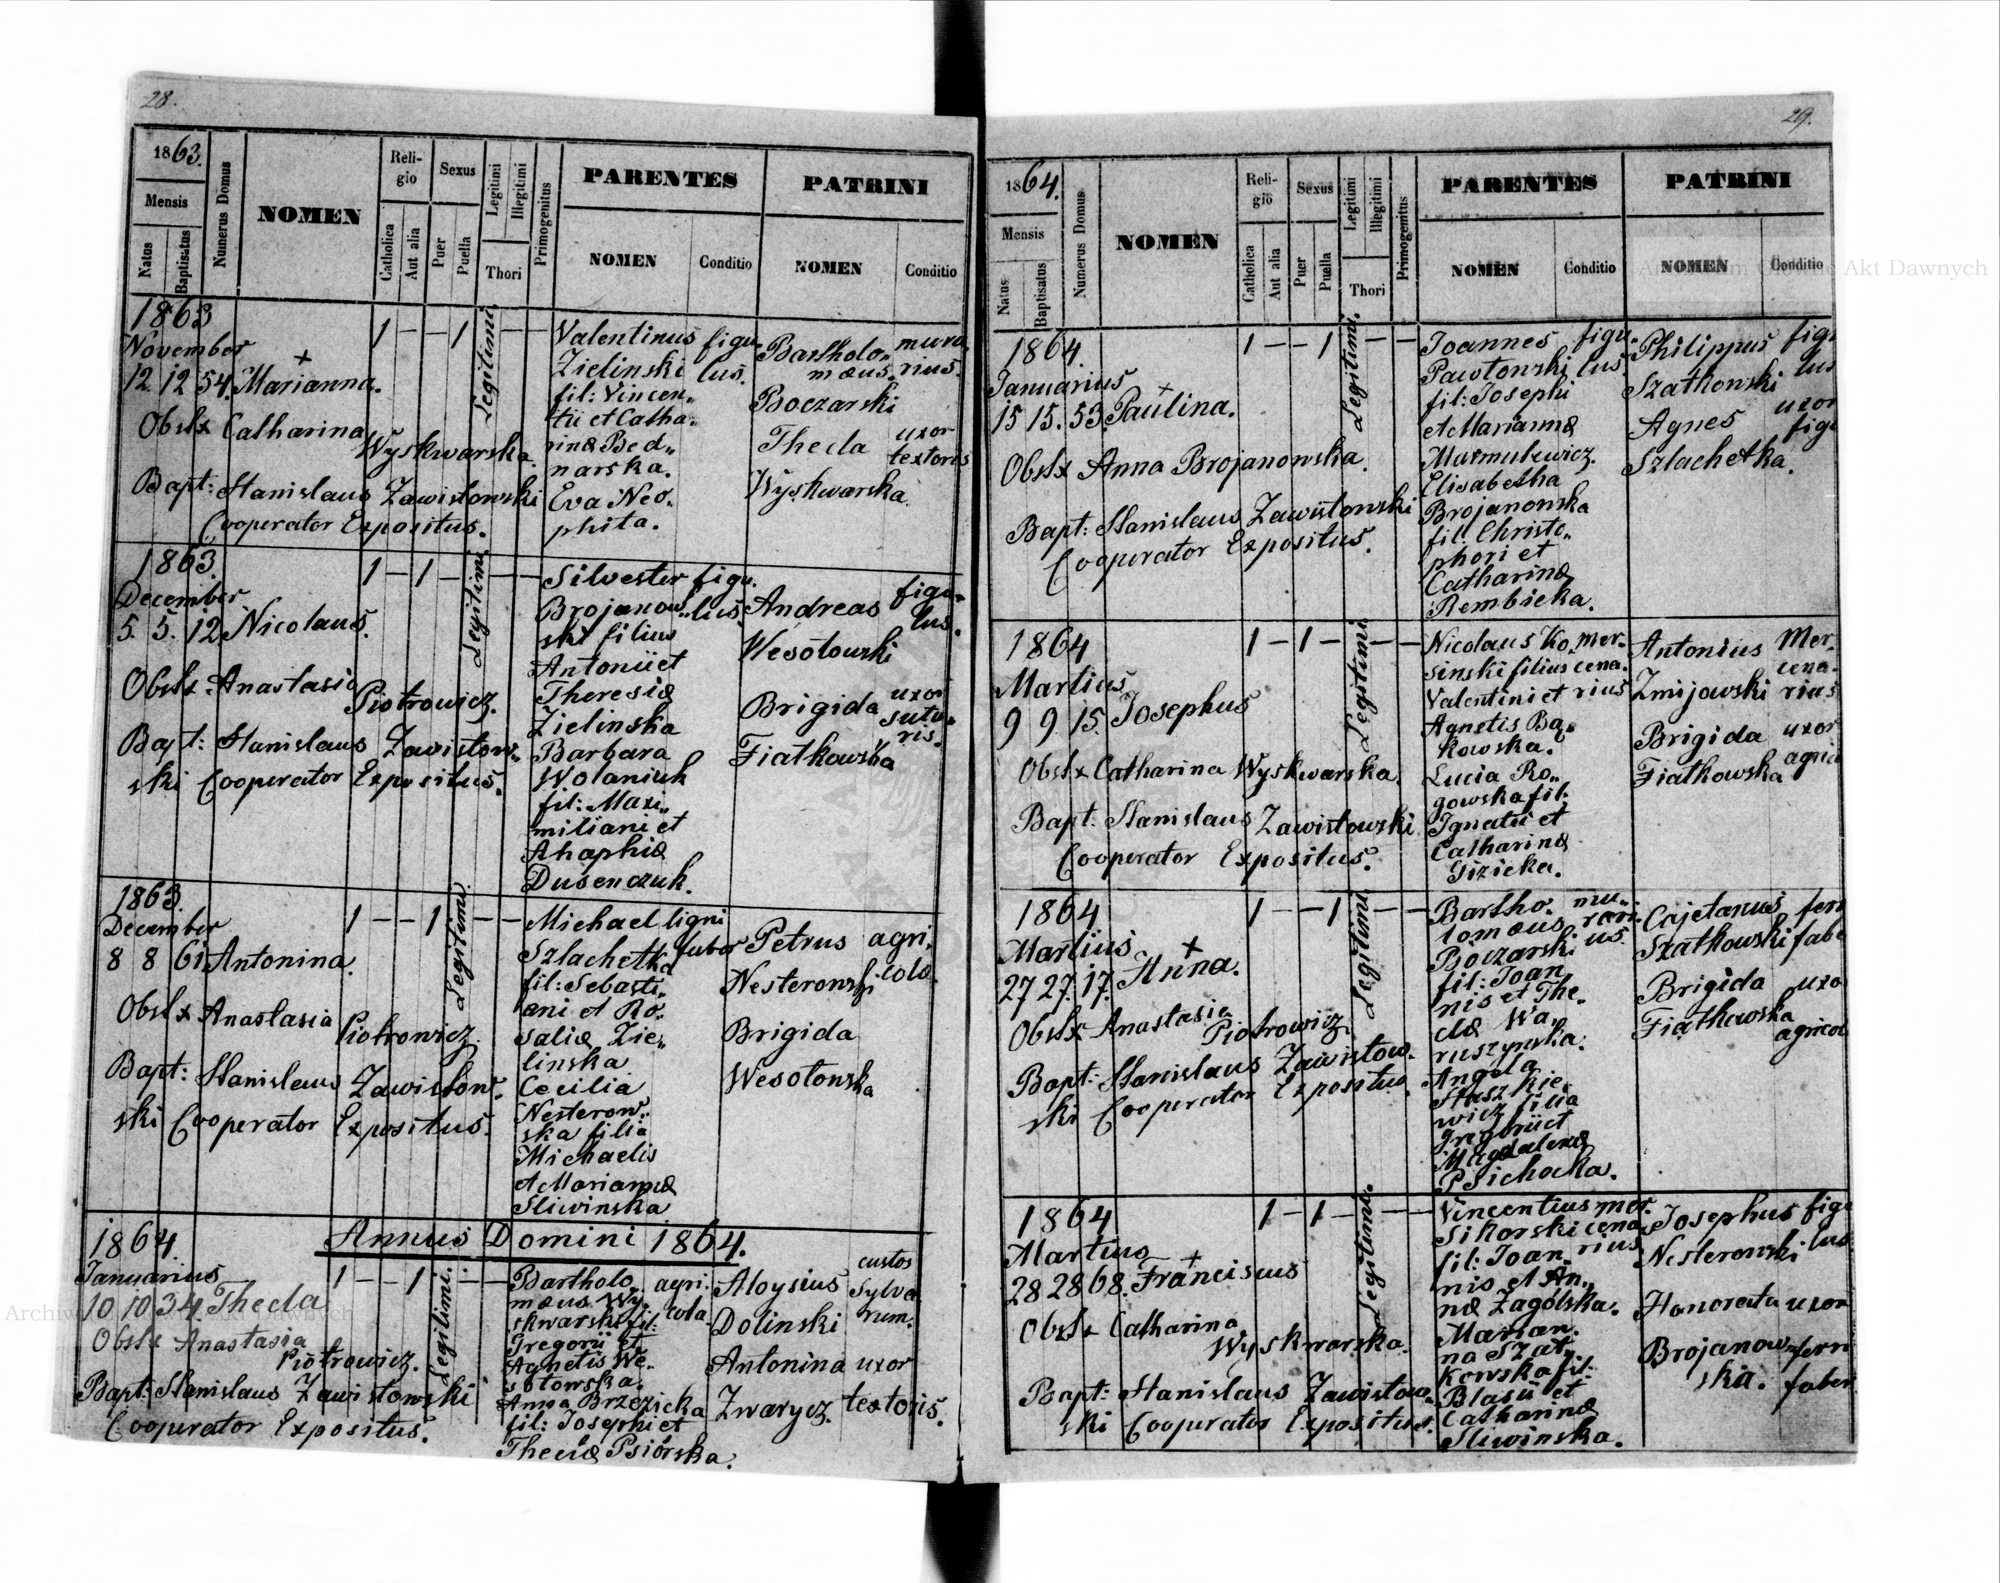 28.
1863.
Mensis
Natus
Baptisatus
Numerus Domus
NOMEN
Religio
Catholica
Aut alia
Sexus
Puer
Puella
Legitimi
Illegitimi
Thori
Primogenitus
PARENTES
NOMEN
Conditio
PATRINI
NOMEN
Conditio
1863
November
12 12 54. Marianna.
Obstx Catharina
Wyskwarska.
Bapt: Stanislaus Zawistowski
Cooperator Expositus.
1 — — 1 — —
Legitimi.
Valentinus figu„
Zielinski lus.
fil: Vincen„
tii et Catha„
rinæ Bed„
narska.
Eva Neo„
phita.
Bartholo„ mura
mæus. rius.
Boczarski
Thecla uxor
textoris
Wyskwarska
1863.
December
5. 5. 12. Nicolaus.
Obstx: Anastasia
Piotrowicz.
Bapt: Stanislaus Zawistow„
ski Cooperator Expositus.
1 — 1 — — —
Legitimi
Silvester figu.
Brojanow„ lus.
ski filius
Antonii et
Theresiæ
Zielinska
Barbara
Wolaniuk
fil: Maxi„
miliani et
Ahaphiæ
Dusenczuk.
Andreas figu„
lus.
Wesołowski
Brigida uxor
suto„
ris.
Fiałkowska
1863.
December
8 8 61 Antonina.
Obstx Anastasia
Piotrowicz.
Bapt: Stanislaus Zawistow„
ski Cooperator Expositus.
1 — — 1 — —
Legitimi.
Michael ligni
Szlachetka faber
fil: Sebasti„
ani et Ro„
saliæ Zie„
linska
Cecilia
Nesterow„
ska filia
Michaelis
et Mariannæ
Sliwinska
Petrus agri„
Nesterowski colæ
Brigida
Wesołowska
Annus Domini 1864.
1864.
Januarius
10 10 34 Thecla
Obstx Anastasia
Piotrowicz.
Bapt: Stanislaus Zawistowski
Cooperator Expositus.
1 — — 1 — —
Legitimi.
Bartholo„ agri„
mæus Wy„ cola
skwarski fil:
Gregorii et
Agnetis We„
sołowska.
Anna Brzezicka
fil: Josephi et
Theclæ Psiorska.
Aloysius custos
sylva
Dolinski rum.
Antonina uxor
Zwarycz. textoris.
29.
1864.
Mensis
Natus
Baptisatus
Numerus Domus
NOMEN
Religio
Catholica
Aut alia
Sexus
Puer
Puella
Legitimi
Illegitimi
Thori
Primogenitus
PARENTES
NOMEN
Conditio
PATRINI
NOMEN
Conditio
1864.
Januarius
15 15. 53. Paulina.
Obstx Anna Brojanowska.
Bapt: Stanislaus Zawistowski
Cooperator Expositus.
1 — — 1 — —
Legitimi.
Joannes figu„
Pawłowski lus.
fil: Josephi
et Mariannæ
Marmulewicz.
Elisabetha
Brojanowska
fil: Christo„
phori et
Catharinæ
Rembicka.
Philippus figu
Szatkowski lus
Agnes uxor
figu
Szlachetka.
1864
Martius
9 9 15. Josephus
Obstx Catharina Wyskwarska.
Bapt: Stanislaus Zawistowski
Cooperator Expositus.
1 — 1 — — —
Legitimi.
Nicolaus Ko„ mer„
sinski filius cena„
Valentini et rius
Agnetis Bą„
kowska.
Lucia Ro„
gowska fil:
Ignatii et
Catharinæ
Gizicka.
Antonius Mer„
cena„
Zmijowski rius
Brigida uxor
Fiałkowska agric
1864
Martius
27 27. 17. Anna.
Obstx Anastasia
Piotrowicz.
Bapt: Stanislaus Zawistow„
ski Cooperator Expositus.
1 — — 1 — —
Legitimi
Bartho„ mu„
lomæus rari„
Boczarski us.
fil: Joan„
nis et The„
clæ Wa„
ruszynska.
Angela
Staszkie„
wicz filia
Gregorii et
Magdalenæ
Psichocka.
Cajetanus ferr
Szatkowski fabe
Brigida uxo
Fiałkowska
agricol
1864
Martius
28 28 68. Franciscus
Obstx Catharina
Wyskwarska.
Bapt: Stanislaus Zawistow„
ski Cooperator Expositus.
1 — 1 — — —
Legitimi.
Vincentius mer„
Sikorski cena„
fil: Joan„ rius
nis et An„
næ Zagolska.
Marian„
na Szat„
kowska fil:
Blasii et
Catharinæ
Sliwinska.
Josephus figu
Nesterowski lus
Honorata uxor
Brojanow„ ferri
ska. faber